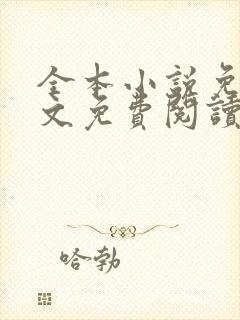 全本小说免
文免費閱讀
哈勃